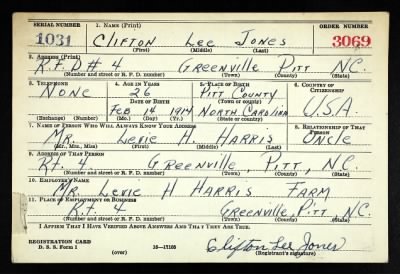 SERIAL NUMBER 1. NAME (Print) ORDER NUMBER
1031 CLIFTON LEE JONES 3069
(First) (Middle) (Last)
2. ADDRESS (Print)
R.F.D # 4 GREENVILLE PITT N.C.
(Number and street or R. F. D. number) (Town) (County) (State)
3. TELEPHONE 4. AGE IN YEARS 5. PLACE OF BIRTH 6. COUNTRY OF CITIZENSHIP
NONE 26 PITT COUNTY
DATE OF BIRTH (Town or county)
FEB 14 1914 NORTH CAROLINA U.S.A.
(Exchange) (Number) (Mo.) (Day) (Yr.) (State or country)
7. NAME OF PERSON WHO WILL ALWAYS KNOW YOUR ADDRESS 8. RELATIONSHIP OF THAT PERSON
MR. LEVIE H. HARRIS UNCLE
(Mr., Mrs., Miss) (First) (Middle) (Last)
9. ADDRESS OF THAT PERSON
RT. 4 GREENVILLE, PITT, N.C.
(Number and street or R. F. D. number) (Town) (County) (State)
10. EMPLOYER'S NAME
MR. LEVIE H HARRIS FARM
11. PLACE OF EMPLOYMENT OR BUSINESS
R.F. 4 GREENVILLE, PITT N.C.
(Number and street or R. F. D. number) (Town) (County) (State)
I AFFIRM THAT I HAVE VERIFIED ABOVE ANSWERS AND THAT THEY ARE TRUE.
REGISTRATION CARD
D. S. S. Form 1 16—17105 Clifton Lee Jones
(over) (Registrant's signature)